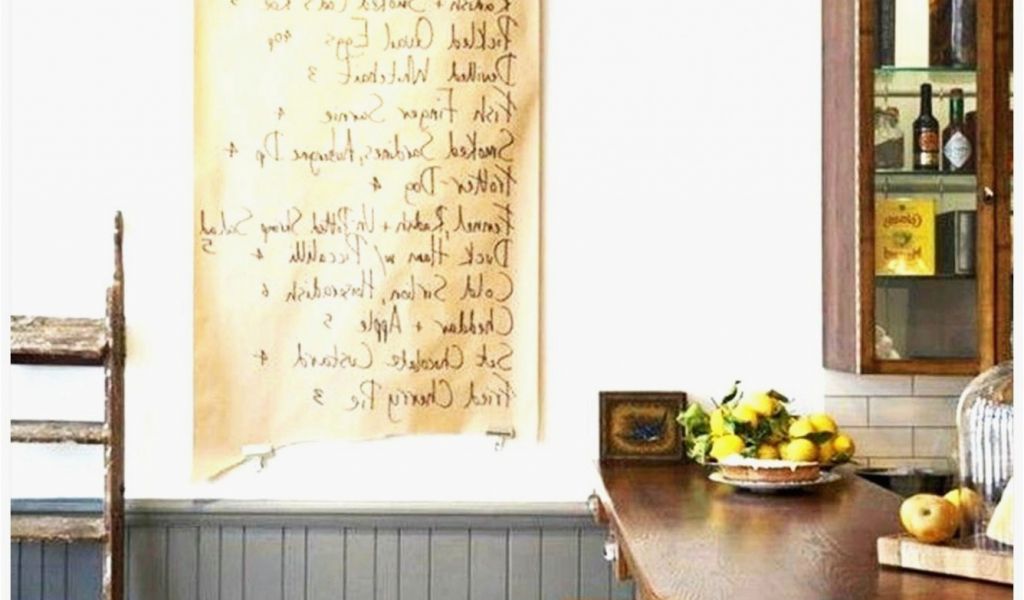 Radish + Smoked Cod's Roe 5
Pickled Quail Eggs 40p
Devilled Whitebait 3
Fish Finger Sarnie 4
Smoked Sardines, Aubergine Dip 4
Trotter Dog 4
Fennel, Radish + Un-Potted Shrimp Salad
5
Duck Ham w/ Piccalilli 4
Cold Sirloin, Horseradish 6
Cheddar + Apple 5
Set Chocolate Custard 4
Fried Cherry Pie 3